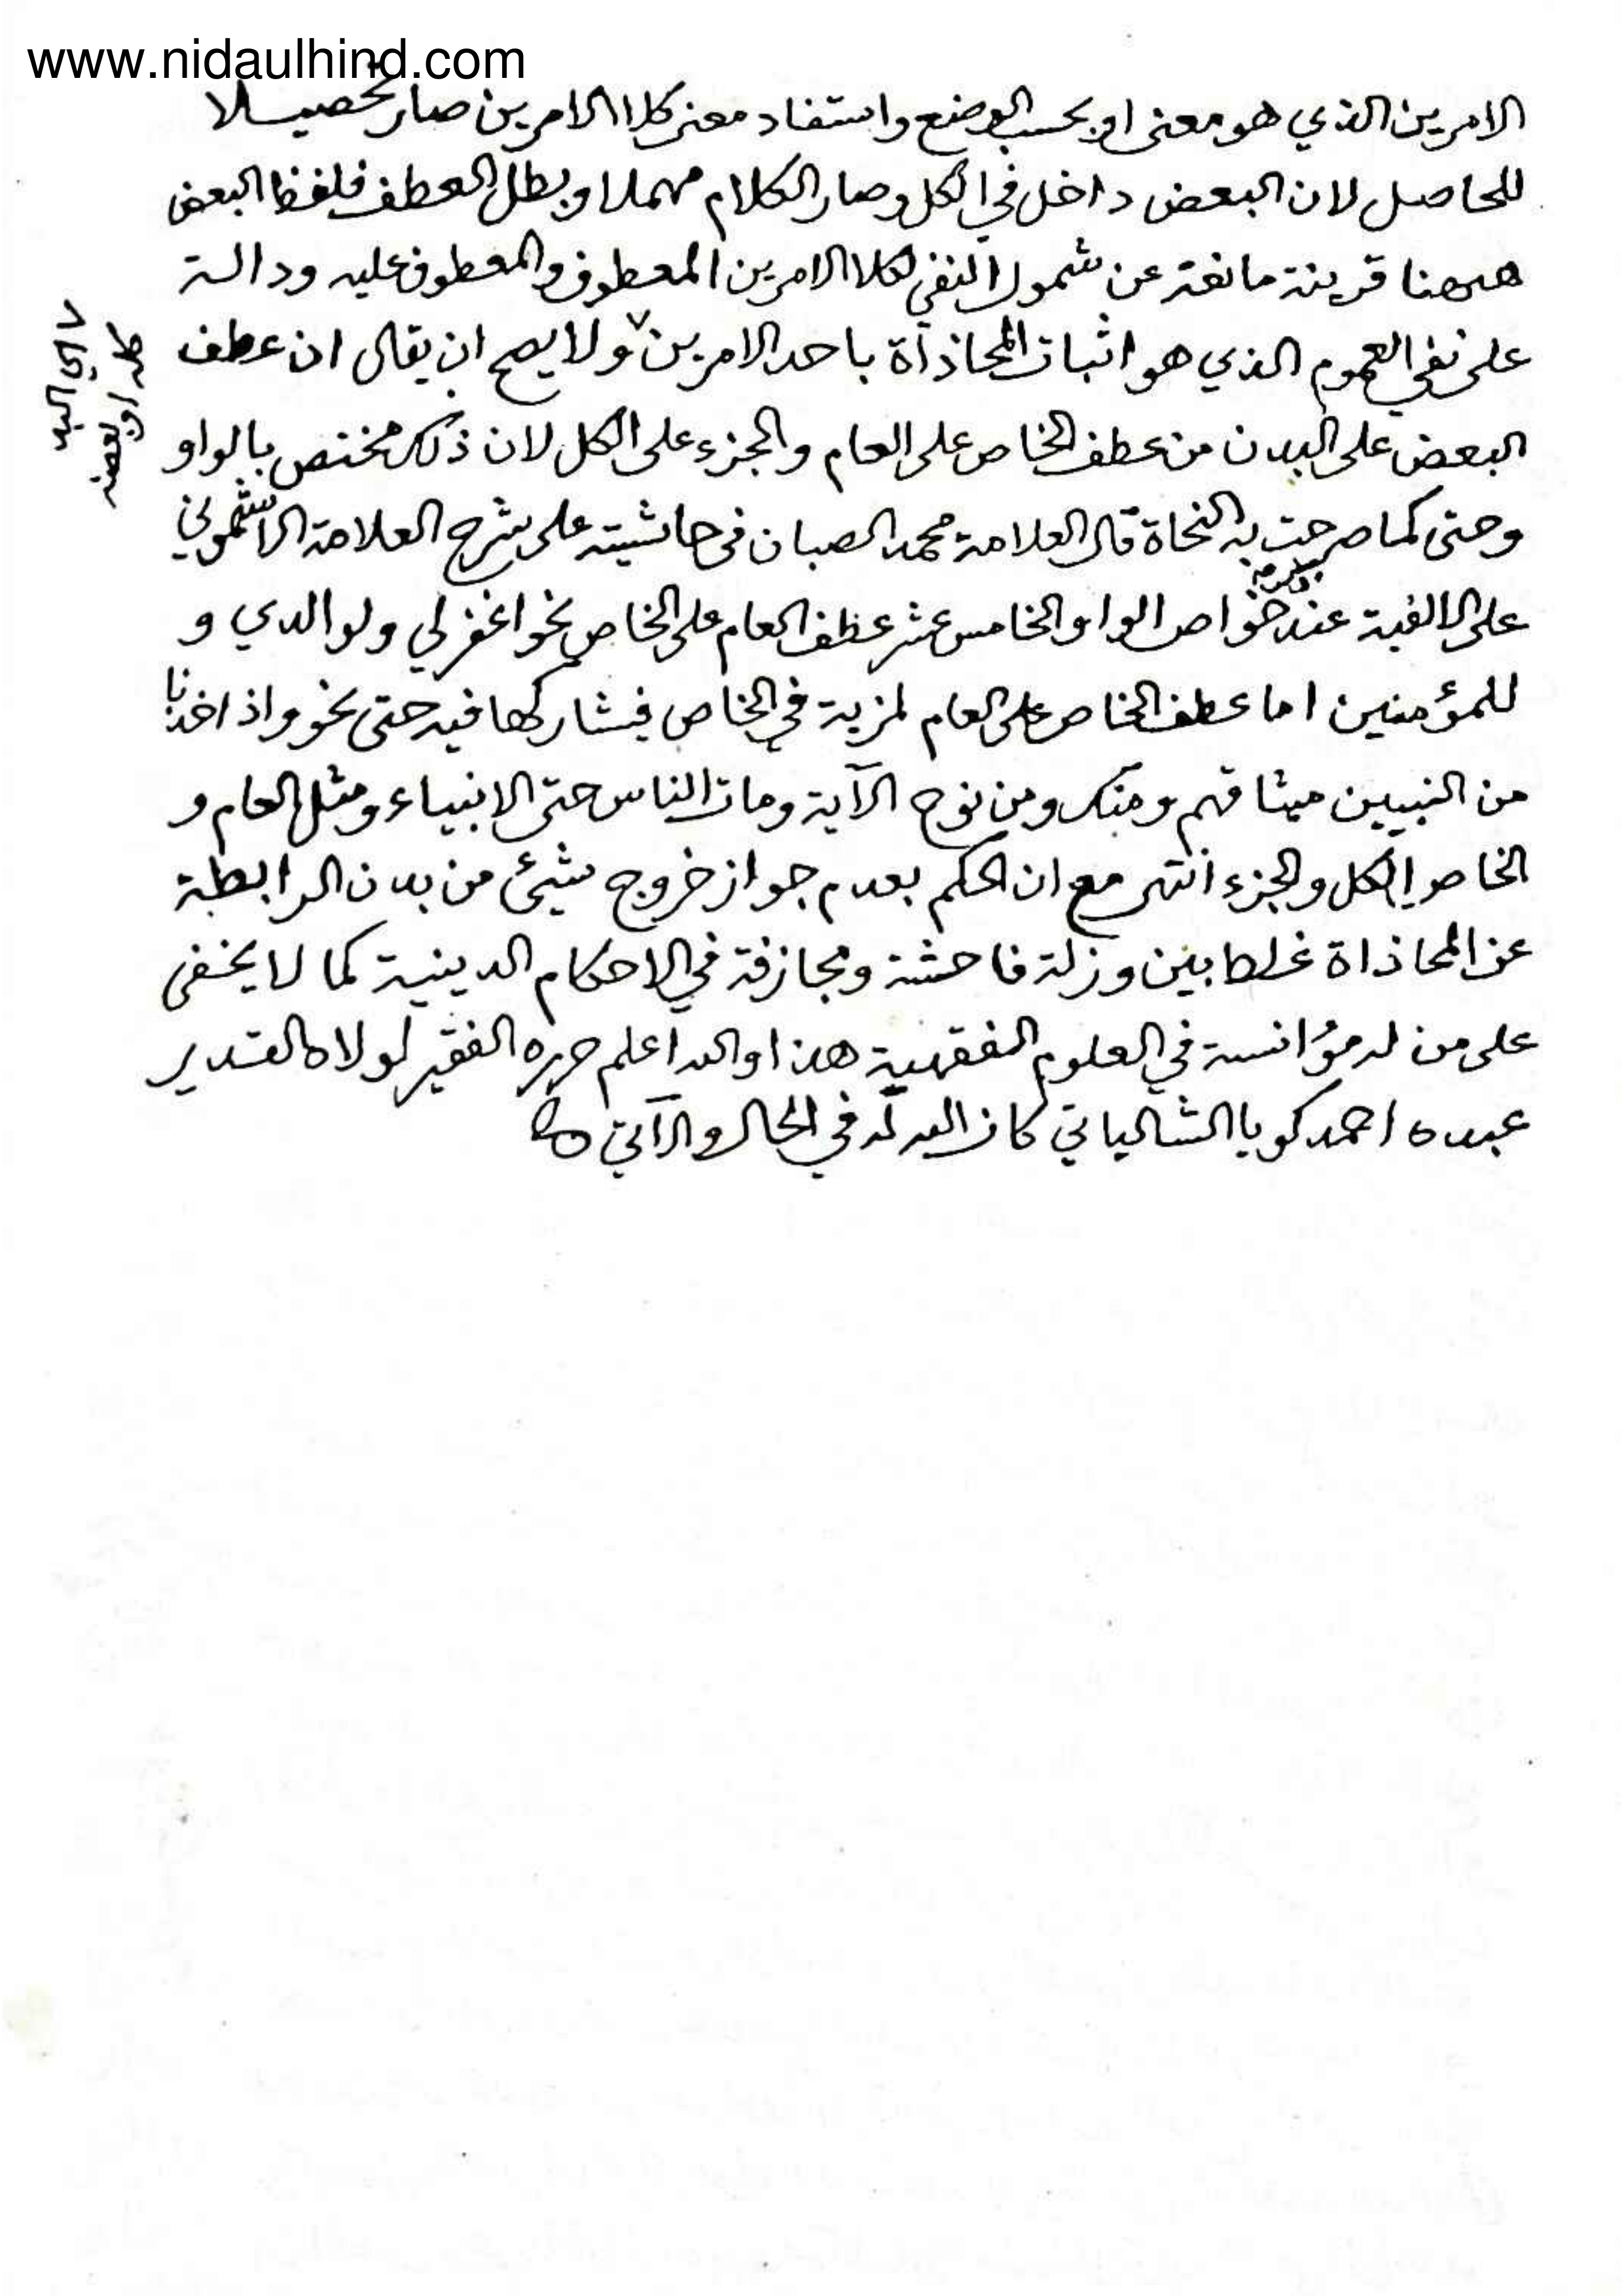 www.nidaulhind.com
الامرين الذي هو معنى او بحسب الوضع واستفاد معنى كلا الامرين صار تحصيلا
للحاصل لان البعض داخل في الكل وصار الكلام مهملا وبطل العطف فلفظ البعض
ههنا قرينة مانعة عن شمول النفي لكلا الامرين المعطوف والمعطوف عليه ودالة
على نفي العموم الذي هو اثبات المحاذاة باحد الامرين ولا يصح ان يقال ان عطف
اي البد
كله او بعضه
البعض على البدن من عطف الخاص على العام والجزء على الكل لان ذلك مختص بالواو
وحتى كما صرحت به النحاة قال العلامة محمد الصبان في حاشيته على شرح العلامة الاشموني
على الالفية عند خواص الواو الخامس عشر عطف العام على الخاص نحو اغفر لي ولوالدي و
للمؤمنين اما عطف الخاص على العام لمزية في الخاص فيشاركها فيه حتى نحو واذ اخذنا
من النبيين ميثاقهم ومنك ومن نوح الآية ومات الناس حتى الانبياء ومثل العام و
الخاص الكل والجزء انتهى مع ان الحكم بعدم جواز خروج شيئ من بدن الرابطة
عن المحاذاة غلط بين وزلة فاحشة ومجازفة في الاحكام الدينية كما لا يخفى
على من له مؤانسة في العلوم الفقهية هذا والله اعلم حرره الفقير لمولاه القدير
عبده احمد كويا الشالياتي كان الله له في الحال والآتي